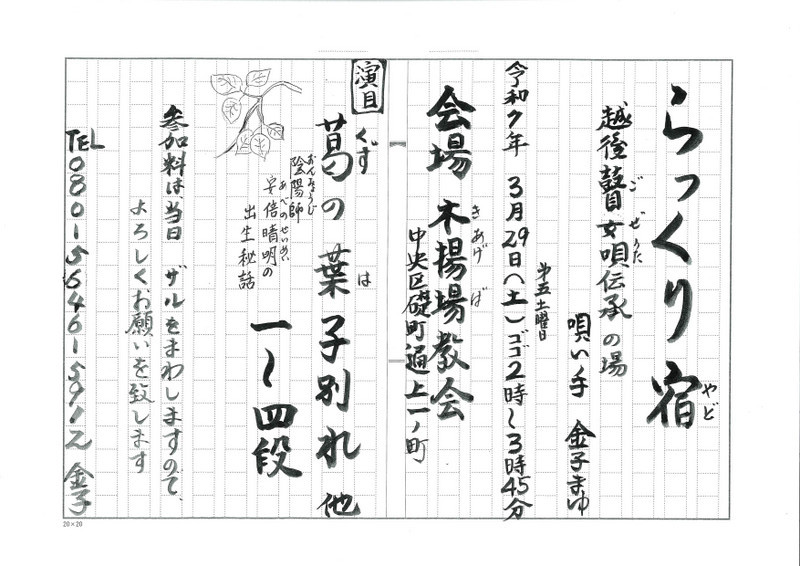 らっくり宿
やど
越後瞽女唄伝承の場
ごぜうた
唄い手 金子まゆ
第五土曜日
令和7年 3月29日(土)ゴゴ2時〜3時45分
会場 木揚場教会
きあげば
中央区礎町通上一ノ町
演目
葛の葉 子別れ 他
くず は
一〜四段
陰陽師
おんみょうじ
安倍晴明の
あべのせいめい
出生秘話
参加料は、当日 ザルをまわしますので、
よろしくお願いを致します
TEL 080 1564615912 金子
20×20